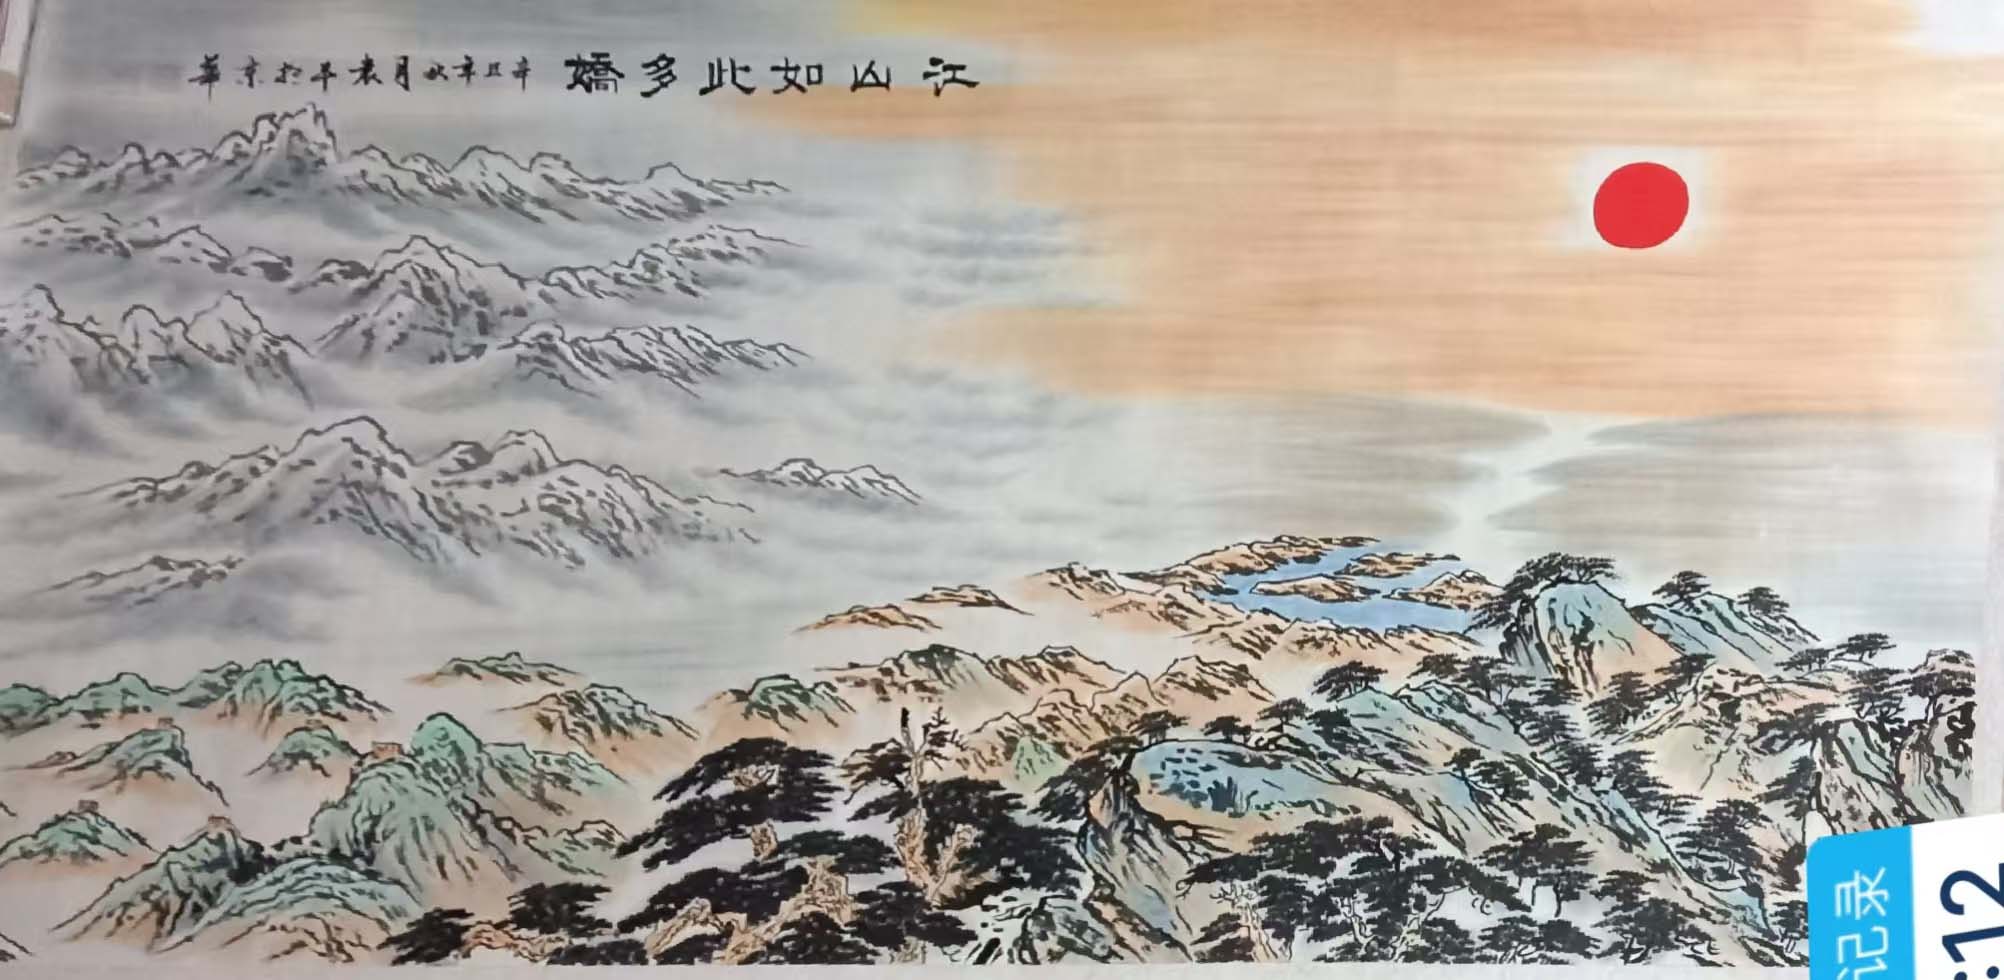 江山如此多嬌 辛丑年秋月袁平於京華
记录
:12